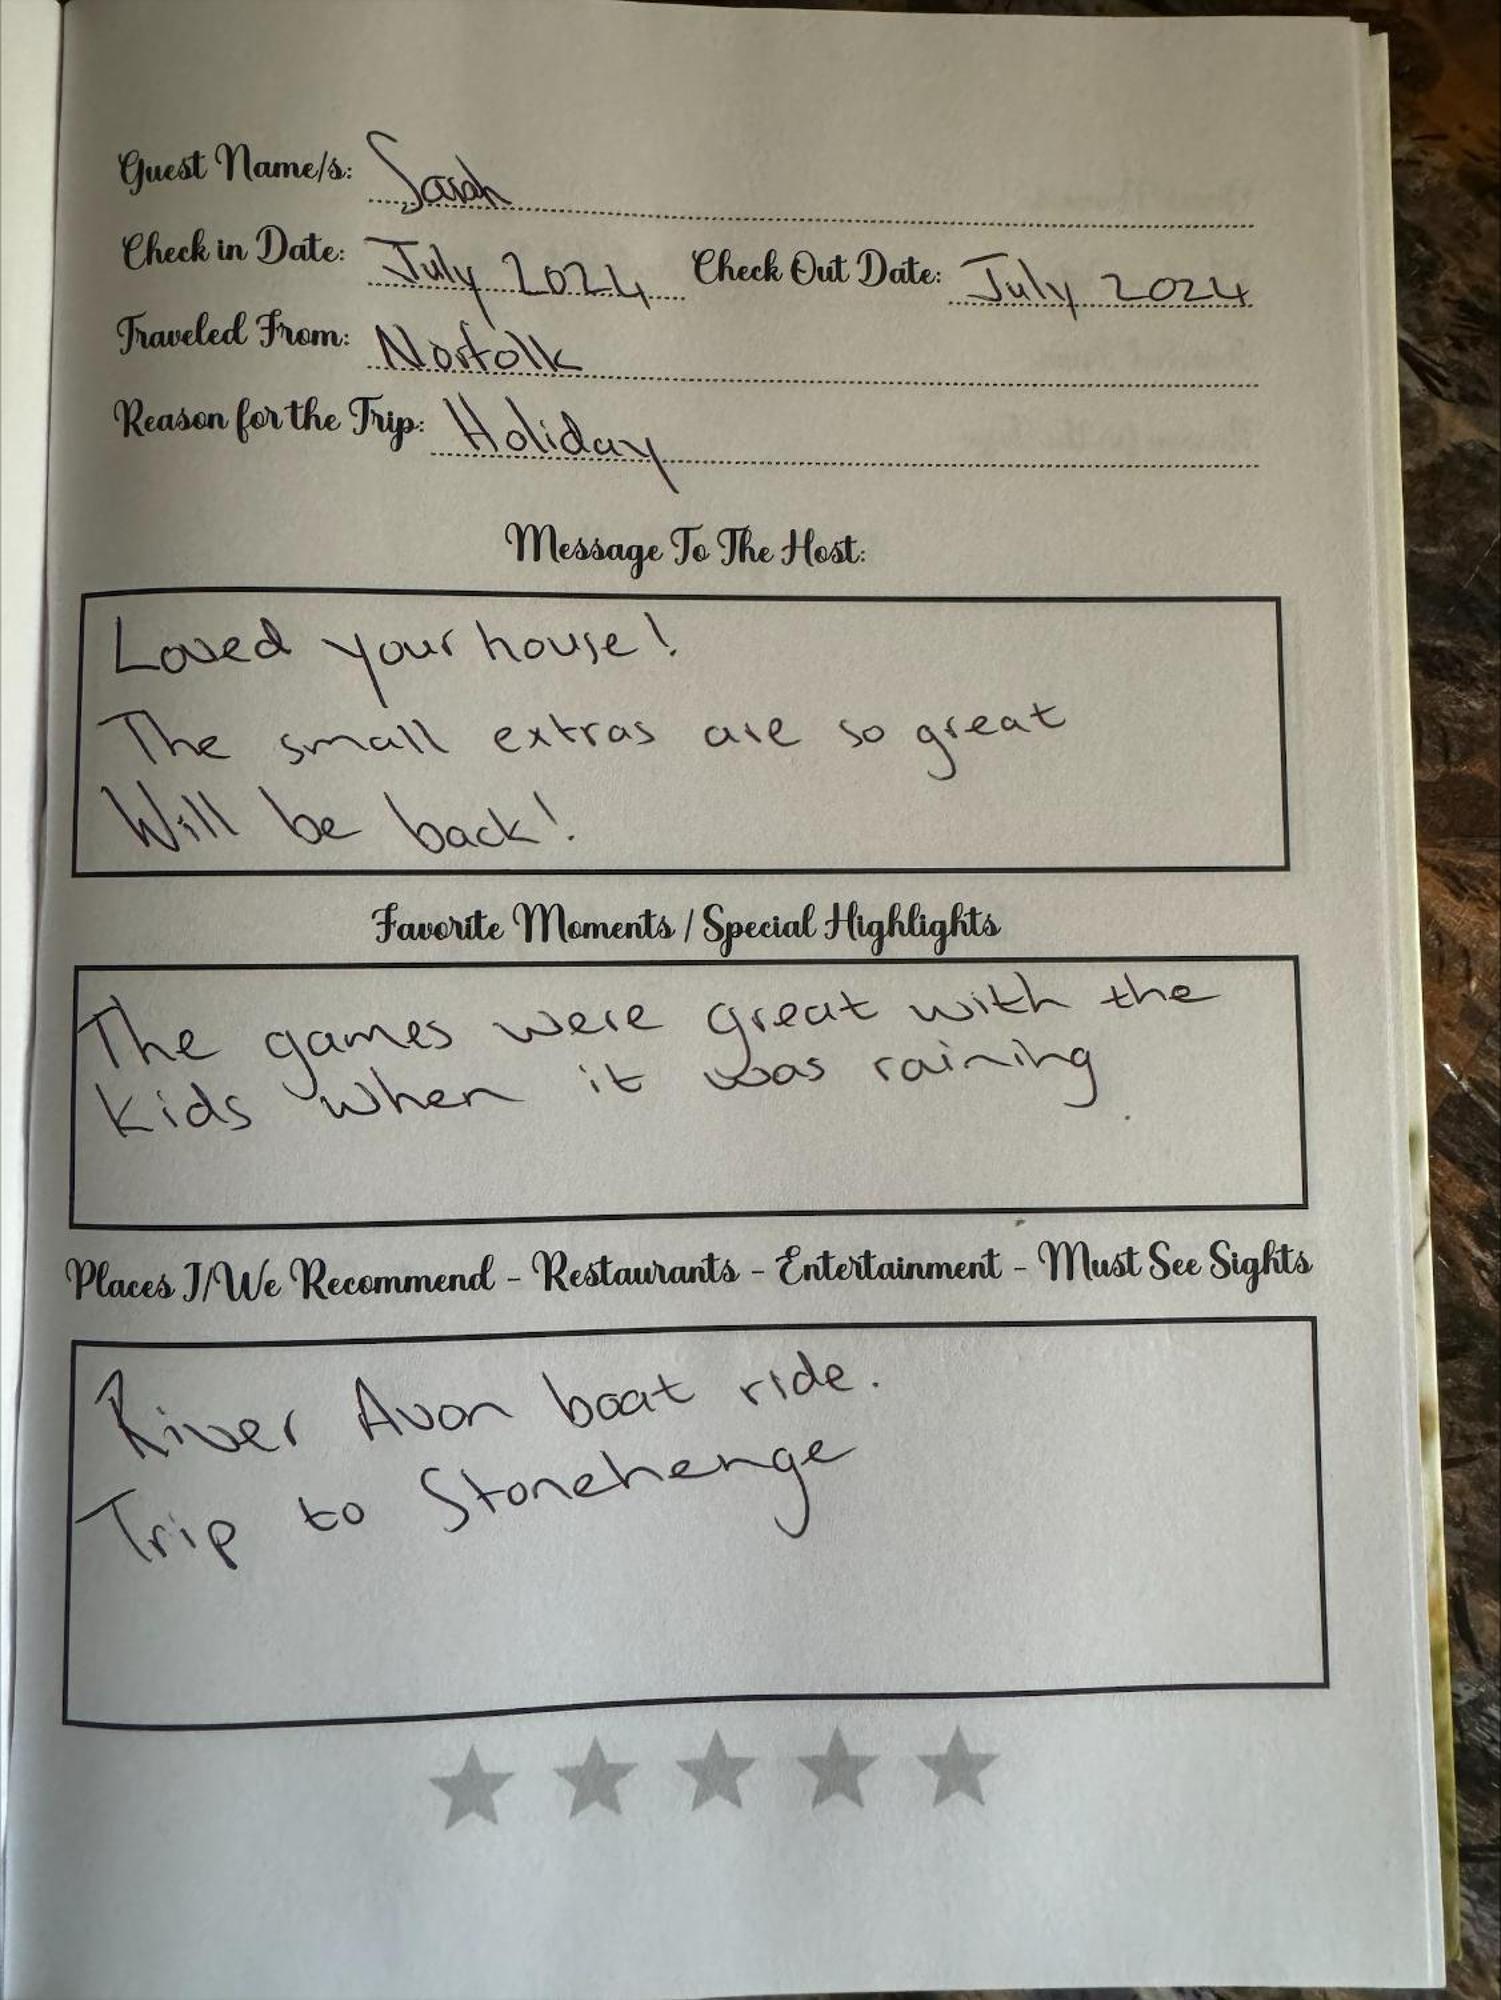 Guest Name/s: Sarah
Check in Date: July 2024 Check Out Date: July 2024
Traveled From: Norfolk
Reason for the Trip: Holiday
Message To The Host:
Loved your house!
The small extras are so great
Will be back!
Favorite Moments / Special Highlights
The games were great with the
kids when it was raining.
Places I/We Recommend - Restaurants - Entertainment - Must See Sights
River Avon boat ride.
Trip to Stonehenge